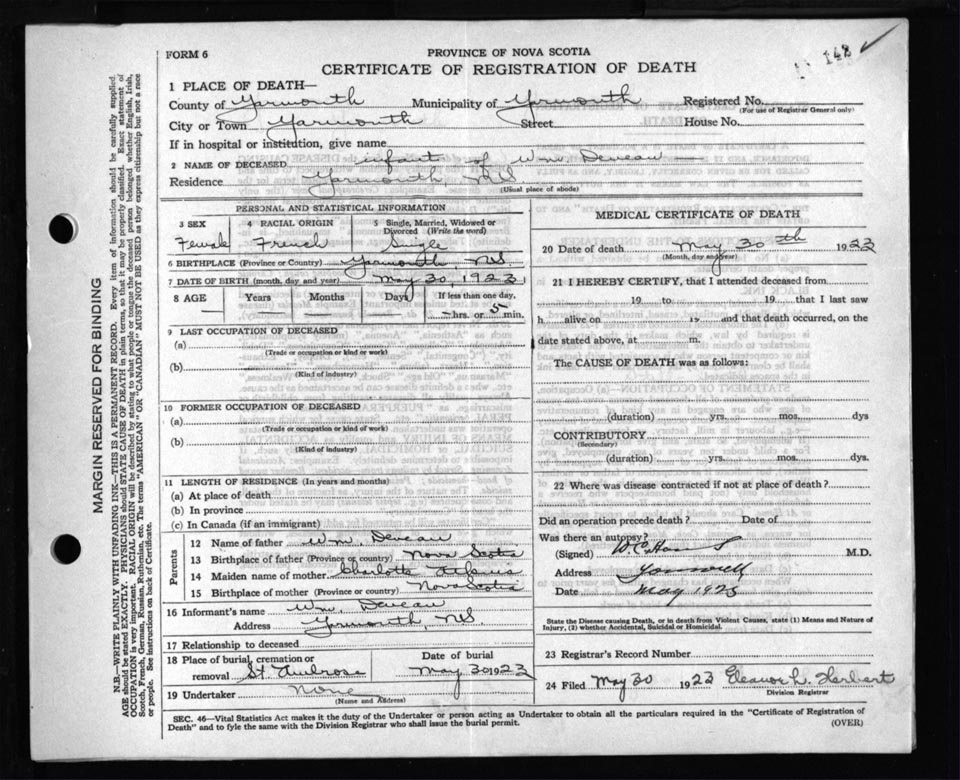 148
FORM 6
PROVINCE OF NOVA SCOTIA
CERTIFICATE OF REGISTRATION OF DEATH
1 PLACE OF DEATH—
County of Yarmouth Municipality of Yarmouth Registered No.
(For use of Registrar General only)
City or Town Yarmouth Street House No.
If in hospital or institution, give name
2 NAME OF DECEASED infant of Wm Deveau
Residence Yarmouth, NS
(Usual place of abode)
PERSONAL AND STATISTICAL INFORMATION
3 SEX 4 RACIAL ORIGIN 5 Single, Married, Widowed or
Divorced (Write the word)
Female French Single
6 BIRTHPLACE (Province or Country) Yarmouth NS
7 DATE OF BIRTH (month, day and year) May 30, 1923
8 AGE Years Months Days If less than one day,
hrs. or 5 min.
9 LAST OCCUPATION OF DECEASED
(a)
(Trade or occupation or kind or work)
(b)
(Kind of industry)
10 FORMER OCCUPATION OF DECEASED
(a)
(Trade or occupation or kind of work)
(b)
(Kind of industry)
11 LENGTH OF RESIDENCE (In years and months)
(a) At place of death
(b) In province
(c) In Canada (if an immigrant)
Parents
12 Name of father Wm. Deveau
13 Birthplace of father (Province or country) Nova Scotia
14 Maiden name of mother Charlotte
15 Birthplace of mother (Province or country) Nova Scotia
16 Informant's name Wm. Deveau
Address Yarmouth, NS
17 Relationship to deceased
18 Place of burial, cremation or removal St. Ambrose Date of burial May 30 1923
19 Undertaker None
(Name and Address)
MEDICAL CERTIFICATE OF DEATH
20 Date of death May 30th 1923
(Month, day and year)
21 I HEREBY CERTIFY, that I attended deceased from
19 to 19 that I last saw
h alive on 19 and that death occurred, on the
date stated above, at m.
The CAUSE OF DEATH was as follows:
(duration) yrs. mos. dys
CONTRIBUTORY
(Secondary)
(duration) yrs. mos. dys.
22 Where was disease contracted if not at place of death?
Did an operation precede death? Date of
Was there an autopsy?
(Signed) M.D.
Address
Date May 1923
State the Disease causing Death, or in death from Violent Causes, state (1) Means and Nature of
Injury, (2) whether Accidental, Suicidal or Homicidal.
23 Registrar's Record Number
24 Filed May 30 1923 Eleanor L. Herbert
Division Registrar
SEC. 46—Vital Statistics Act makes it the duty of the Undertaker or person acting as Undertaker to obtain all the particulars required in the "Certificate of Registration of
Death" and to fyle the same with the Division Registrar who shall issue the burial permit.
(OVER)
MARGIN RESERVED FOR BINDING
N.B.—WRITE PLAINLY WITH UNFADING INK—THIS IS A PERMANENT RECORD. Every item of information should be carefully supplied.
AGE should be stated EXACTLY. PHYSICIANS should STATE CAUSE OF DEATH in plain terms, so that it may be properly classified. Exact statement of
OCCUPATION is very important. RACIAL ORIGIN will be described by stating to what people or tongue the deceased person belonged whether English, Irish,
Scotch, French, German, Russian, Ruthenian, etc. The terms "AMERICAN" OR "CANADIAN" MUST NOT BE USED as they express citizenship but not a race
or people. See instructions on back of Certificate.